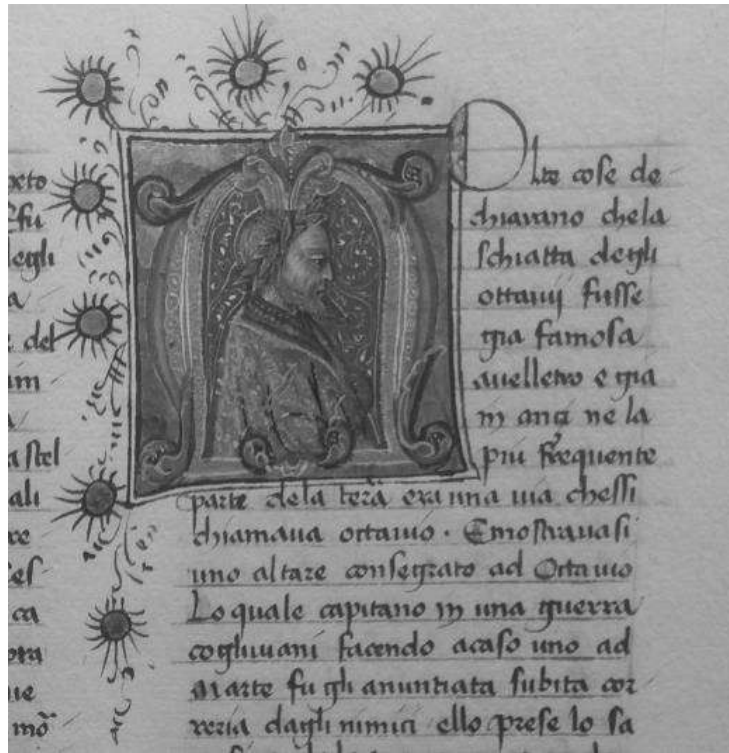 xto
Efu
egli
a
e del
um
a
astel
ali
re
ses
ca
ora
ue
mō
Olte cose de
chiarano chela
schiatta degli
ottauij fusse
gia famosa
auelletro e gia
in anci ne la
piu frequente
parte dela terā era una uia chessi
chiamaua ottauio · Emostrauasi
uno altare consegrato ad Ottauio
Lo quale capitano in una guerra
cogliuiani facendo acaso uno ad
Marte fu gli anuntiata subita cor
reria dagli nimici ello prese lo sa